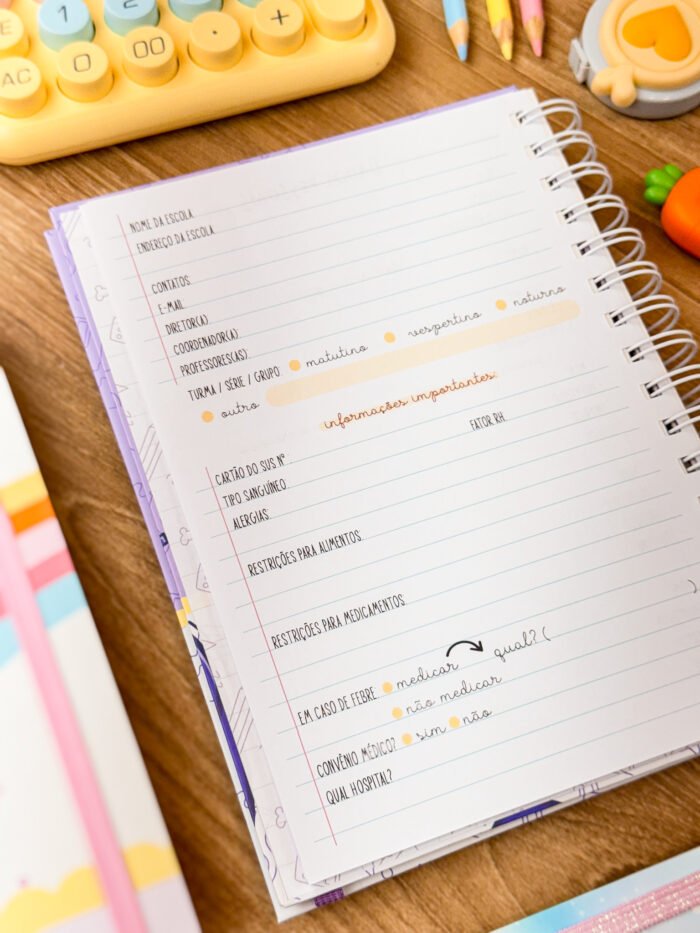 1 2
AC 0 00 . +
NOME DA ESCOLA
ENDEREÇO DA ESCOLA
CONTATOS
E-MAIL
DIRETOR(A)
COORDENADOR(A)
PROFESSORES(AS)
TURMA / SÉRIE / GRUPO: matutino vespertino noturno
outro
informações importantes:
CARTÃO DO SUS Nº
TIPO SANGUÍNEO FATOR RH
ALERGIAS:
RESTRIÇÕES PARA ALIMENTOS:
RESTRIÇÕES PARA MEDICAMENTOS:
EM CASO DE FEBRE: medicar qual? ( )
não medicar
CONVÊNIO MÉDICO? sim não
QUAL HOSPITAL?